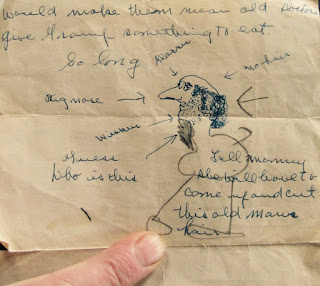 would make them mean old Doctors
give Gramp something to eat.
So long
Big nose
Whiskers
Guess
Who is this
Tell mammy
she will have to
come up and cut
this old mans
hair